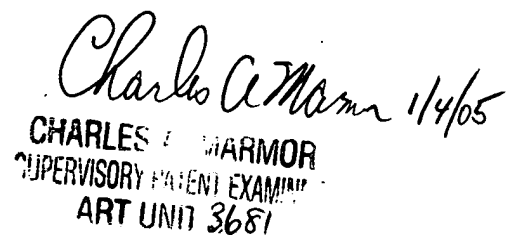 Charles A Marmor 1/4/05
CHARLES A. MARMOR
SUPERVISORY PATENT EXAMINER
ART UNIT 3681